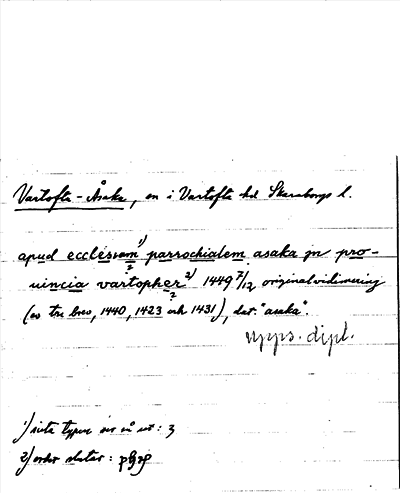 Vartofta-Åsaka, sn i Vartofta hd Skaraborgs l.
apud ecclesiam 1) parrochialem asaka jn pro-
uincia vartopher 2) 1449 7/12 originalvidimering
(av tre brev, 1440, 1423 och 1431), dat. "asaka".
Upps. dipl.
1) sista typen ser så ut: 3
2) ordet slutar: